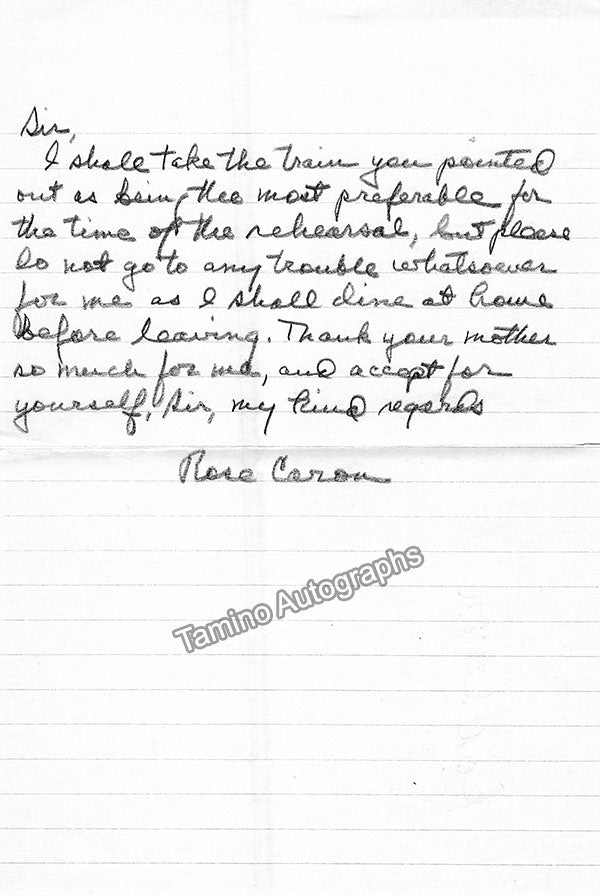 Sir,
I shall take the train you pointed
out as being the most preferable for
the time of the rehearsal, but please
do not go to any trouble whatsoever
for me as I shall dine at home
before leaving. Thank your mother
so much for me, and accept for
yourself, Sir, my kind regards
Rose Caron
Tamino Autographs